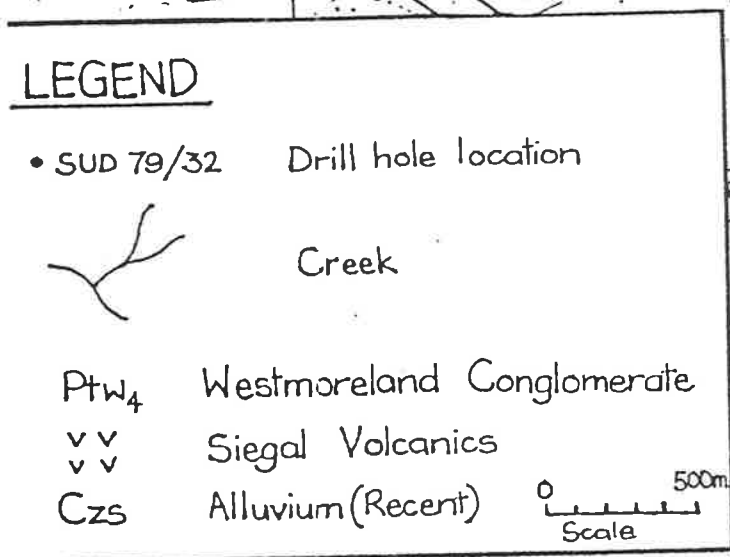 LEGEND
• SUD 79/32 Drill hole location
Creek
Ptw₄ Westmoreland Conglomerate
v v
v v Siegal Volcanics
Czs Alluvium (Recent)
0 500m.
Scale